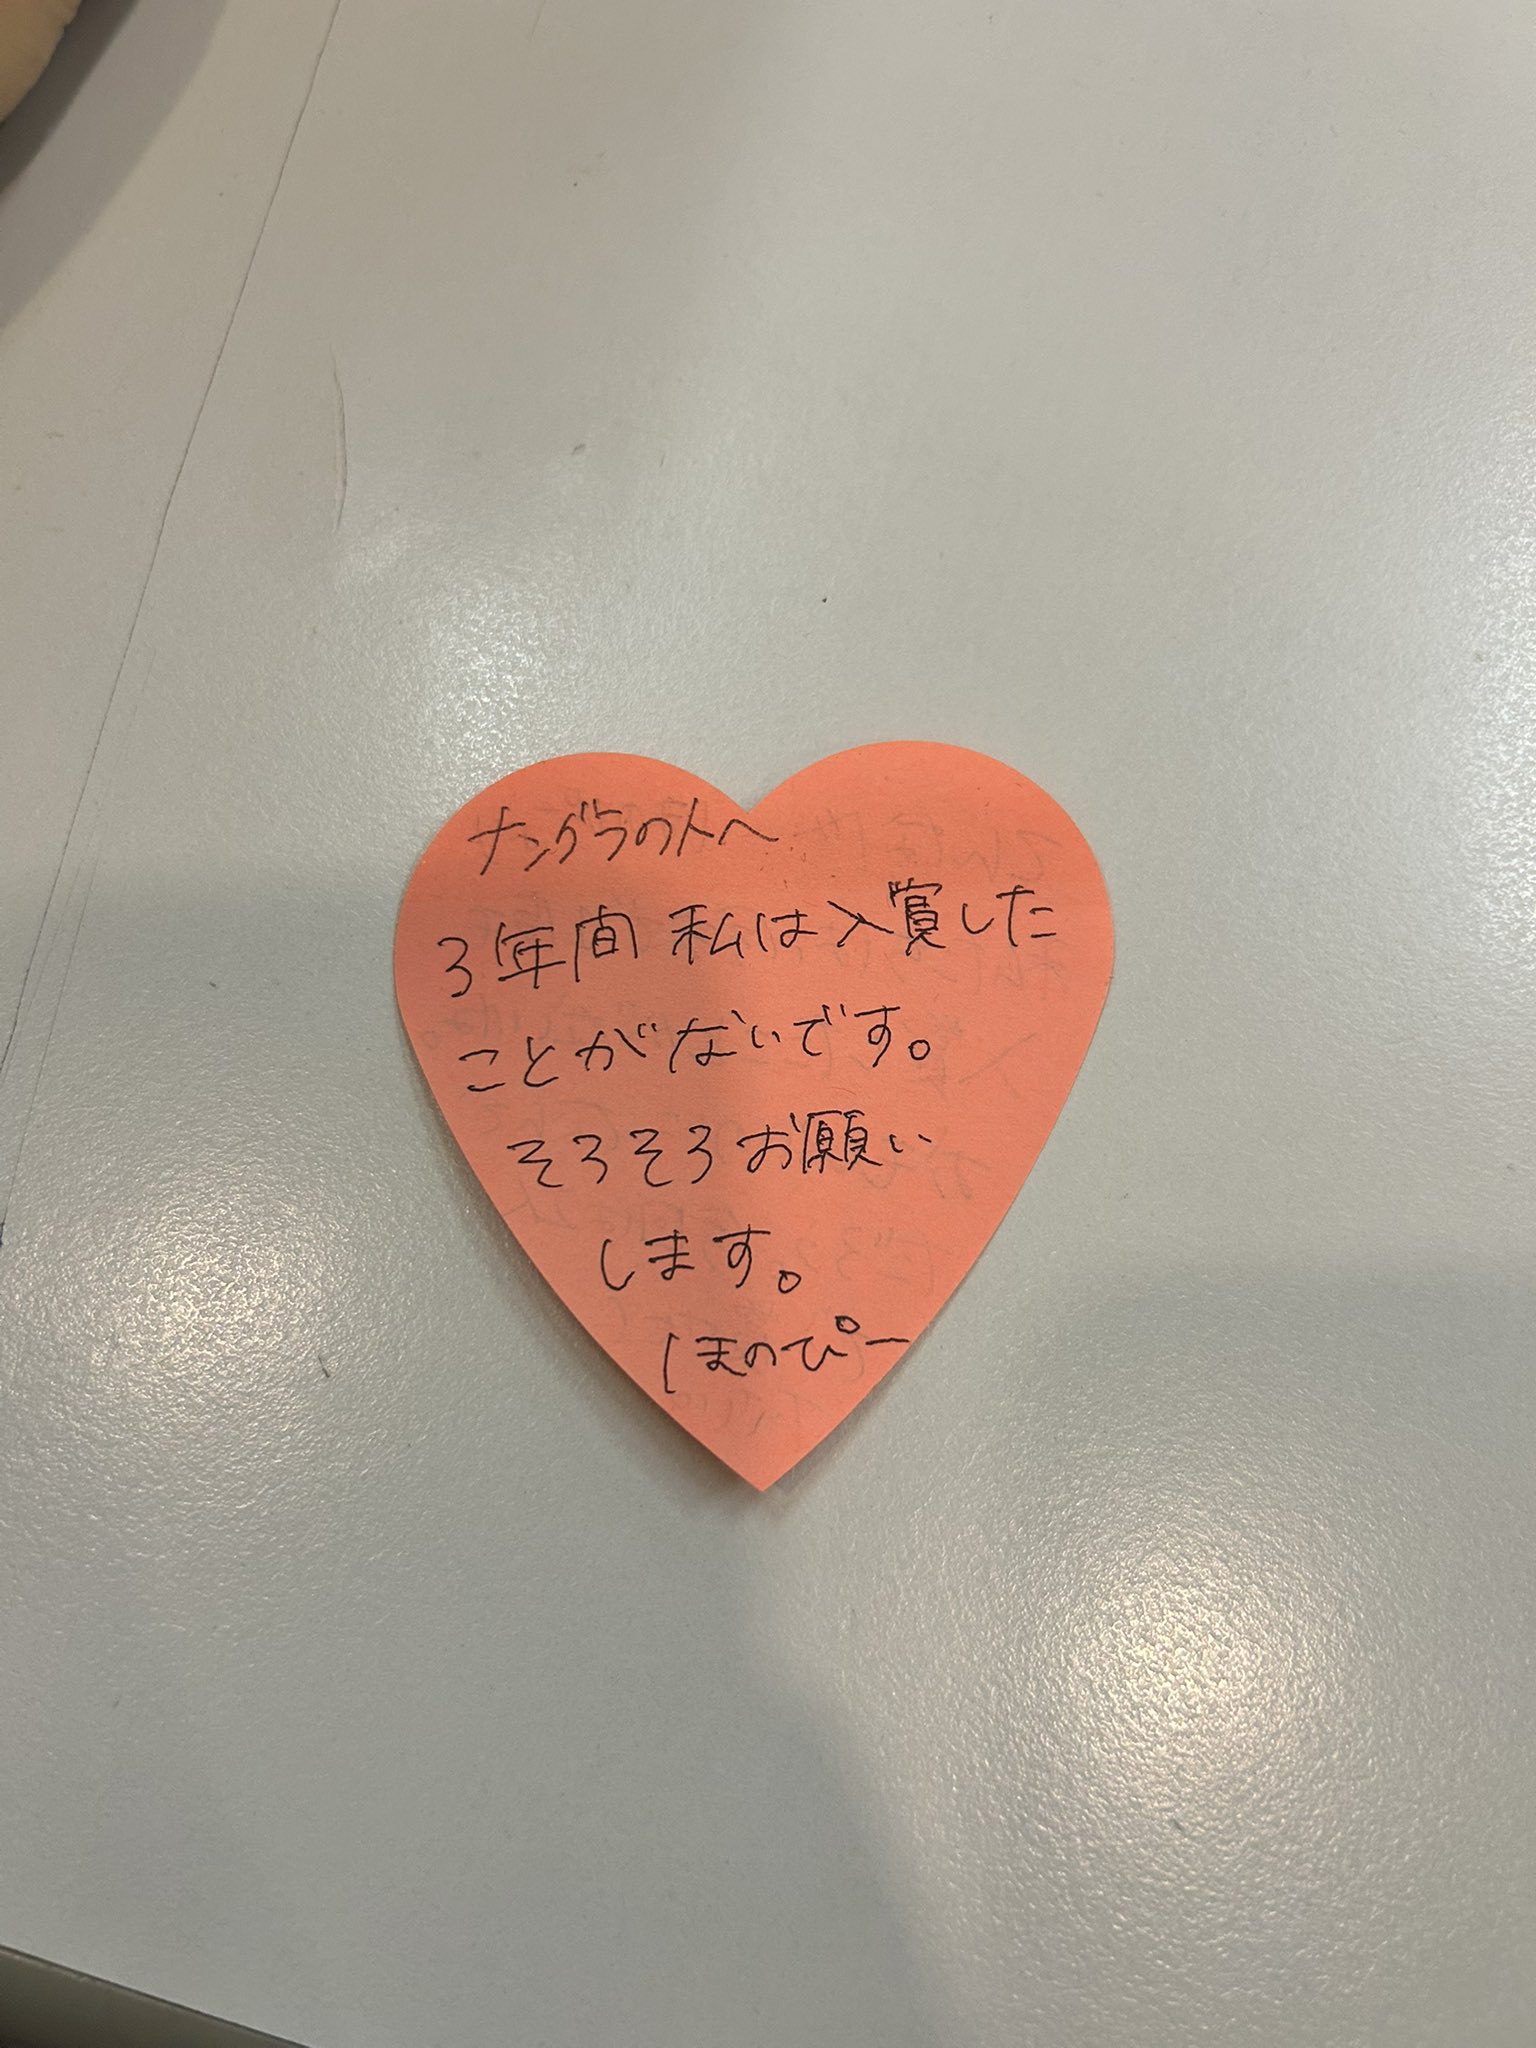 ナングラの人へ
3年間 私は入賞した
ことがないです。
そろそろお願い
します。
ほのぴー